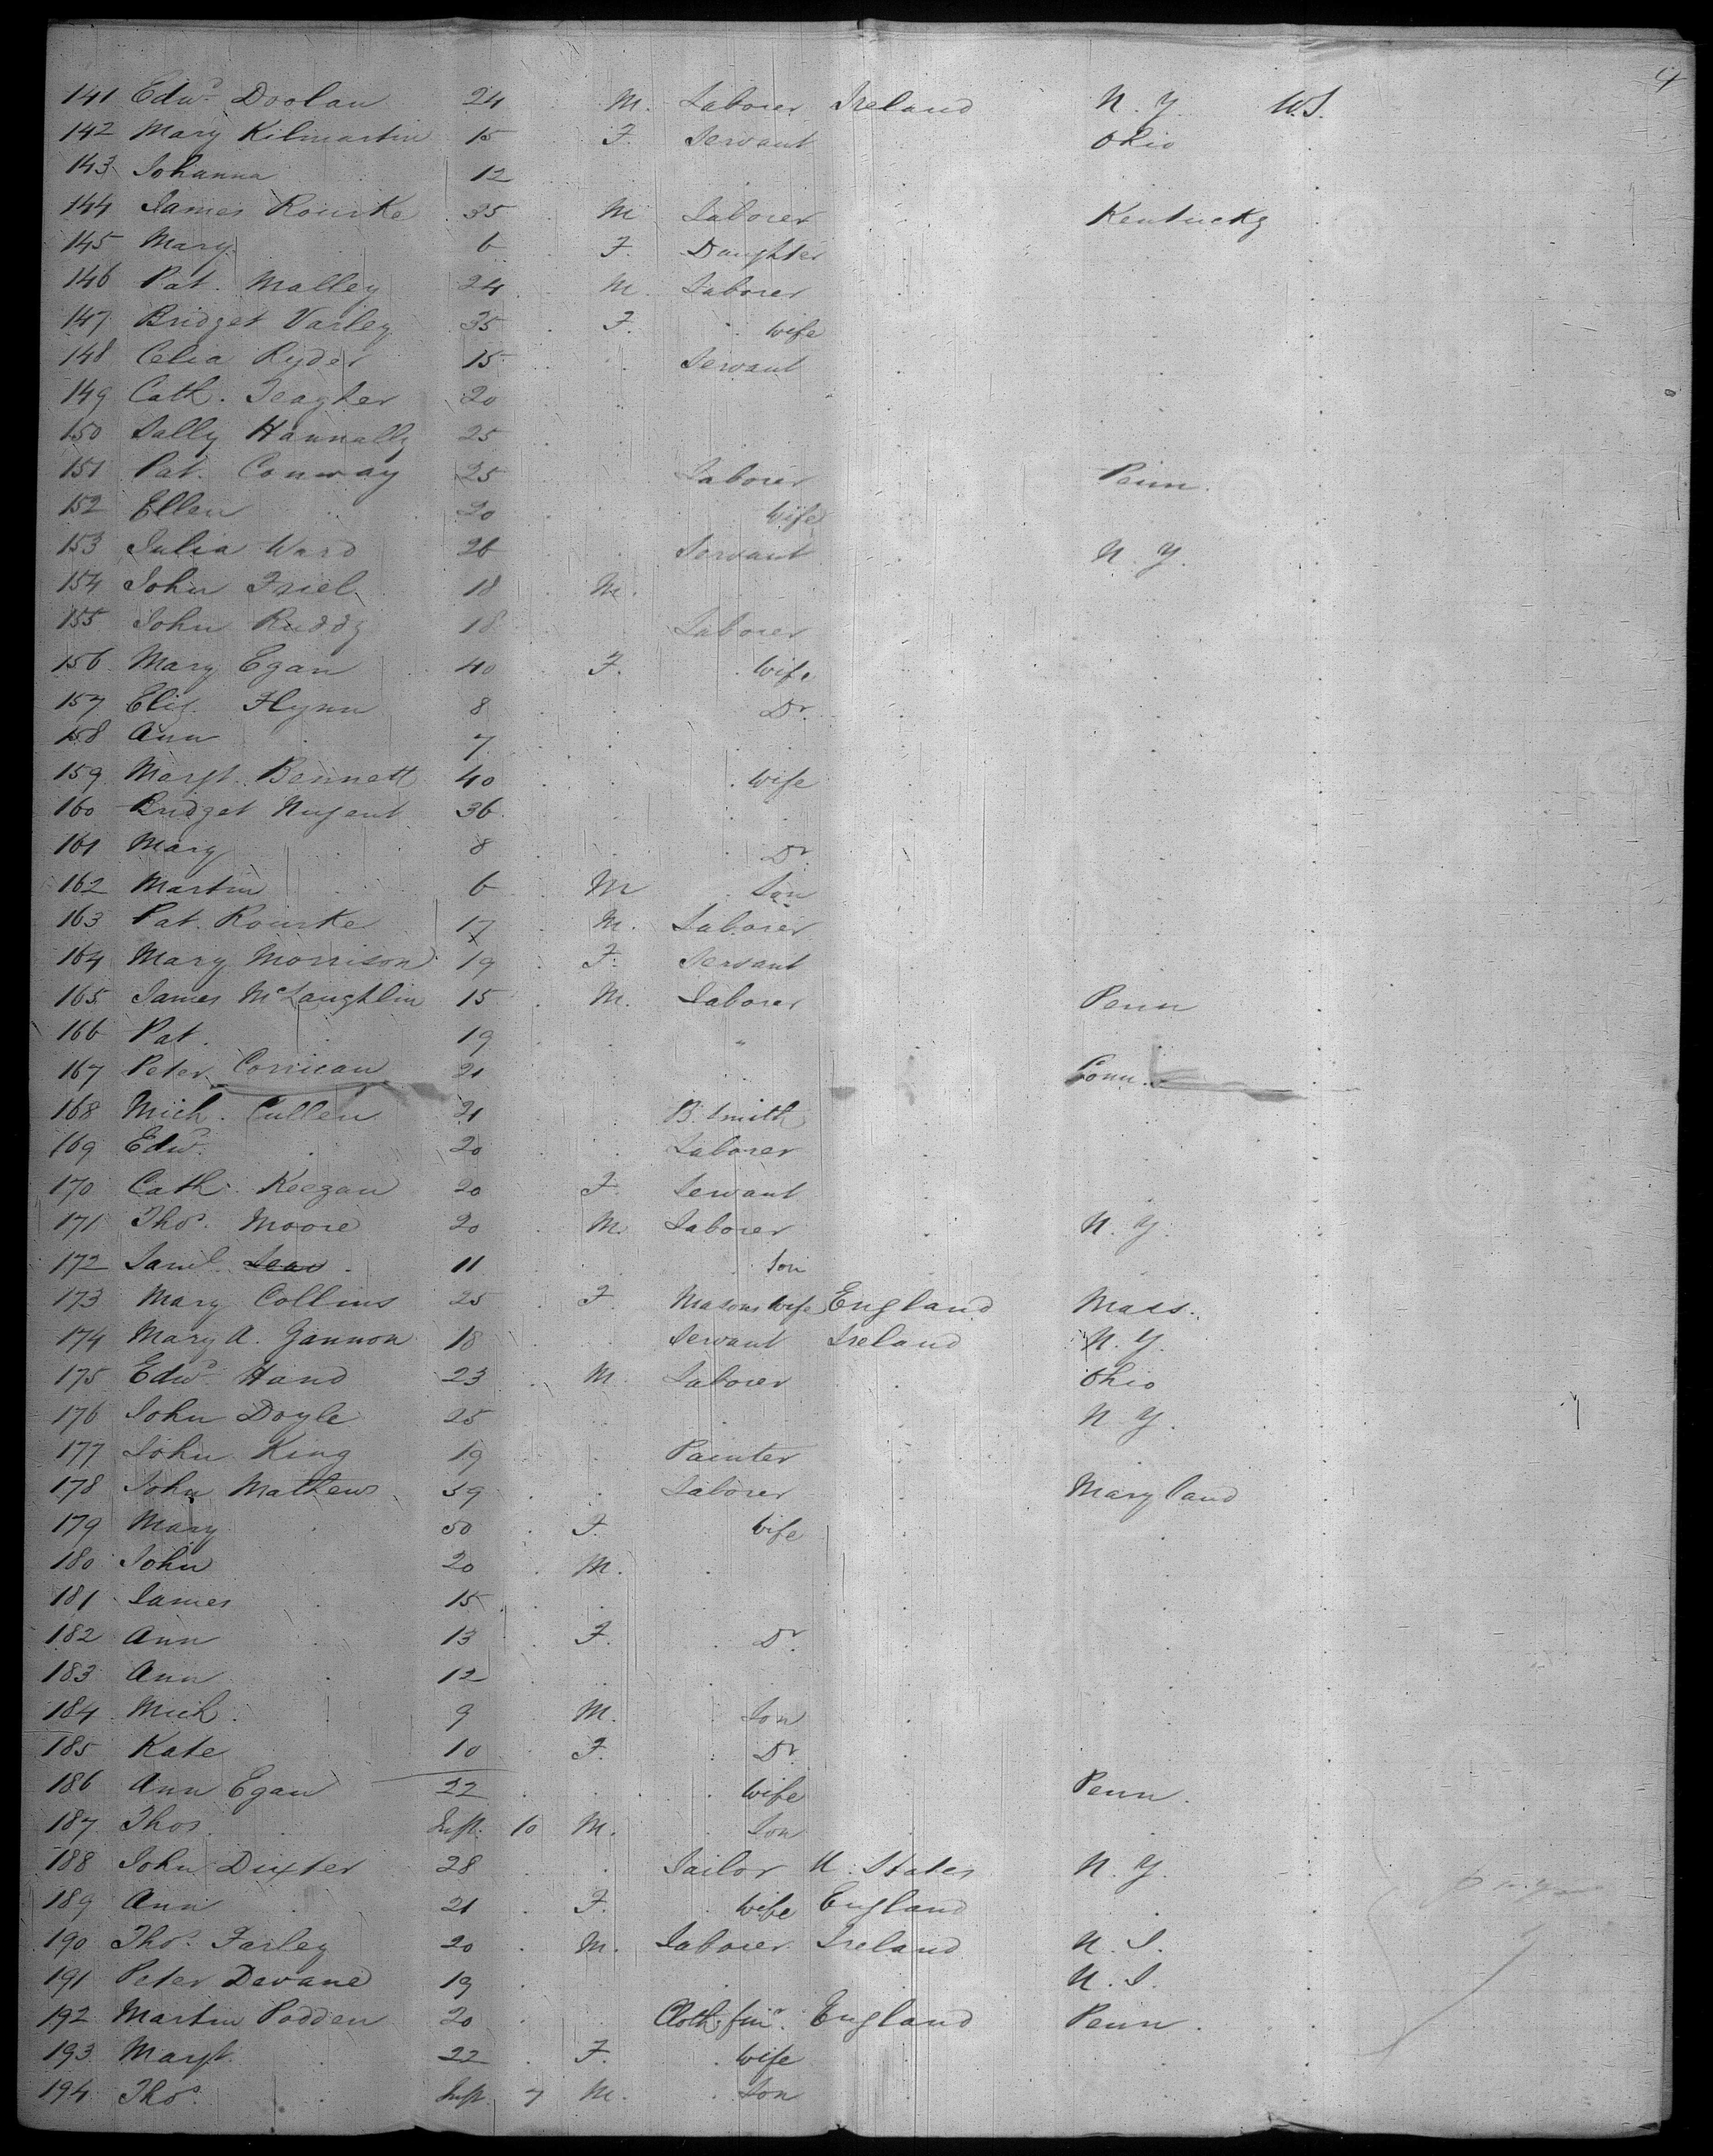 4
141 Edwd. Doolan 24 M. Laborer Ireland N. Y. U.S.
142 Mary Kilmartin 15 F. Servant Ohio
143 Johanna 12
144 James Rourke 35 M Laborer Kentucky
145 Mary 6 F. Daughter
146 Pat. Malley 24 M. Laborer
147 Bridget Varley 35 F. wife
148 Celia Ryder 15 Servant
149 Cath. Teagher 20
150 Sally Hannally 25
151 Pat. Conway 25 Laborer Penn.
152 Ellen 20 wife
153 Julia Ward 26 Servant N. Y.
154 John Friel 18 M.
155 John Ruddy 18 Laborer
156 Mary Egan 40 F. wife
157 Eliz. Flynn 8 Dr.
158 Ann 7
159 Margt. Bennett 40 wife
160 Bridget Nugent 36
161 Mary 8 Dr.
162 Martin 6 M Son
163 Pat. Rourke 17 M. Laborer
164 Mary Morrison 19 F. Servant
165 James McLaughlin 15 M. Laborer Penn
166 Pat. 19 "
167 Peter Corrican 21 Conn.
168 Mich. Cullen 21 B. Smith
169 Edwd. 20 Laborer
170 Cath. Keegan 20 F. Servant
171 Thos. Moore 20 M. Laborer N. Y.
172 Saml. 11 Son
173 Mary Collins 25 F. Masons wife England Mass.
174 Mary A. Gannon 18 Servant Ireland N. Y.
175 Edwd. Hand 23 M. Laborer Ohio
176 John Doyle 25 N. Y.
177 John King 19 Painter
178 John Mathews 59 Laborer Maryland
179 Mary 50 F. wife
180 John 20 M.
181 James 15
182 Ann 13 F. Dr.
183 Ann 12
184 Mich. 9 M. Son
185 Kate 10 F. Dr.
186 Ann Egan 22 wife Penn.
187 Thos. Inft. 10 M. Son
188 John Dixter 28 Sailor U. States N. Y.
189 Ann 21 F. wife England
190 Thos. Farley 20 M. Laborer Ireland N. J.
191 Peter Devane 19 N. J.
192 Martin Podden 20 Cloth finr. England Penn.
193 Margt. 22 F. wife
194 Thos. Inft. 7 M. Son